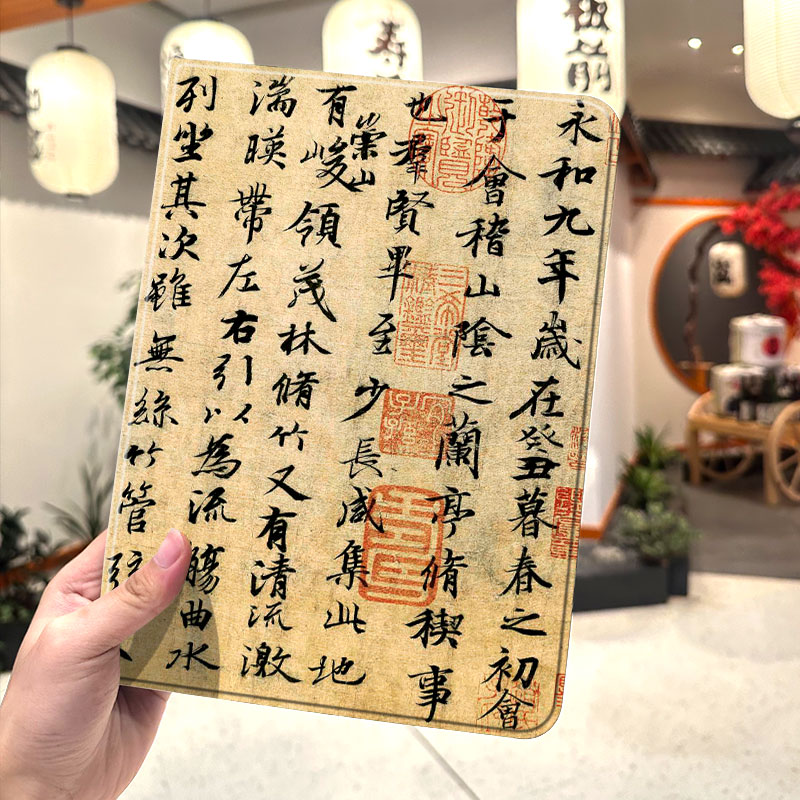 永和九年歲在癸丑暮春之初會
于會稽山陰之蘭亭脩稧事
也羣賢畢至少長咸集此地
有崇山峻領茂林脩竹又有清流激
湍暎帶左右引以為流觴曲水
列坐其次雖無絲竹管
寿
板前
三希堂
宜子孫